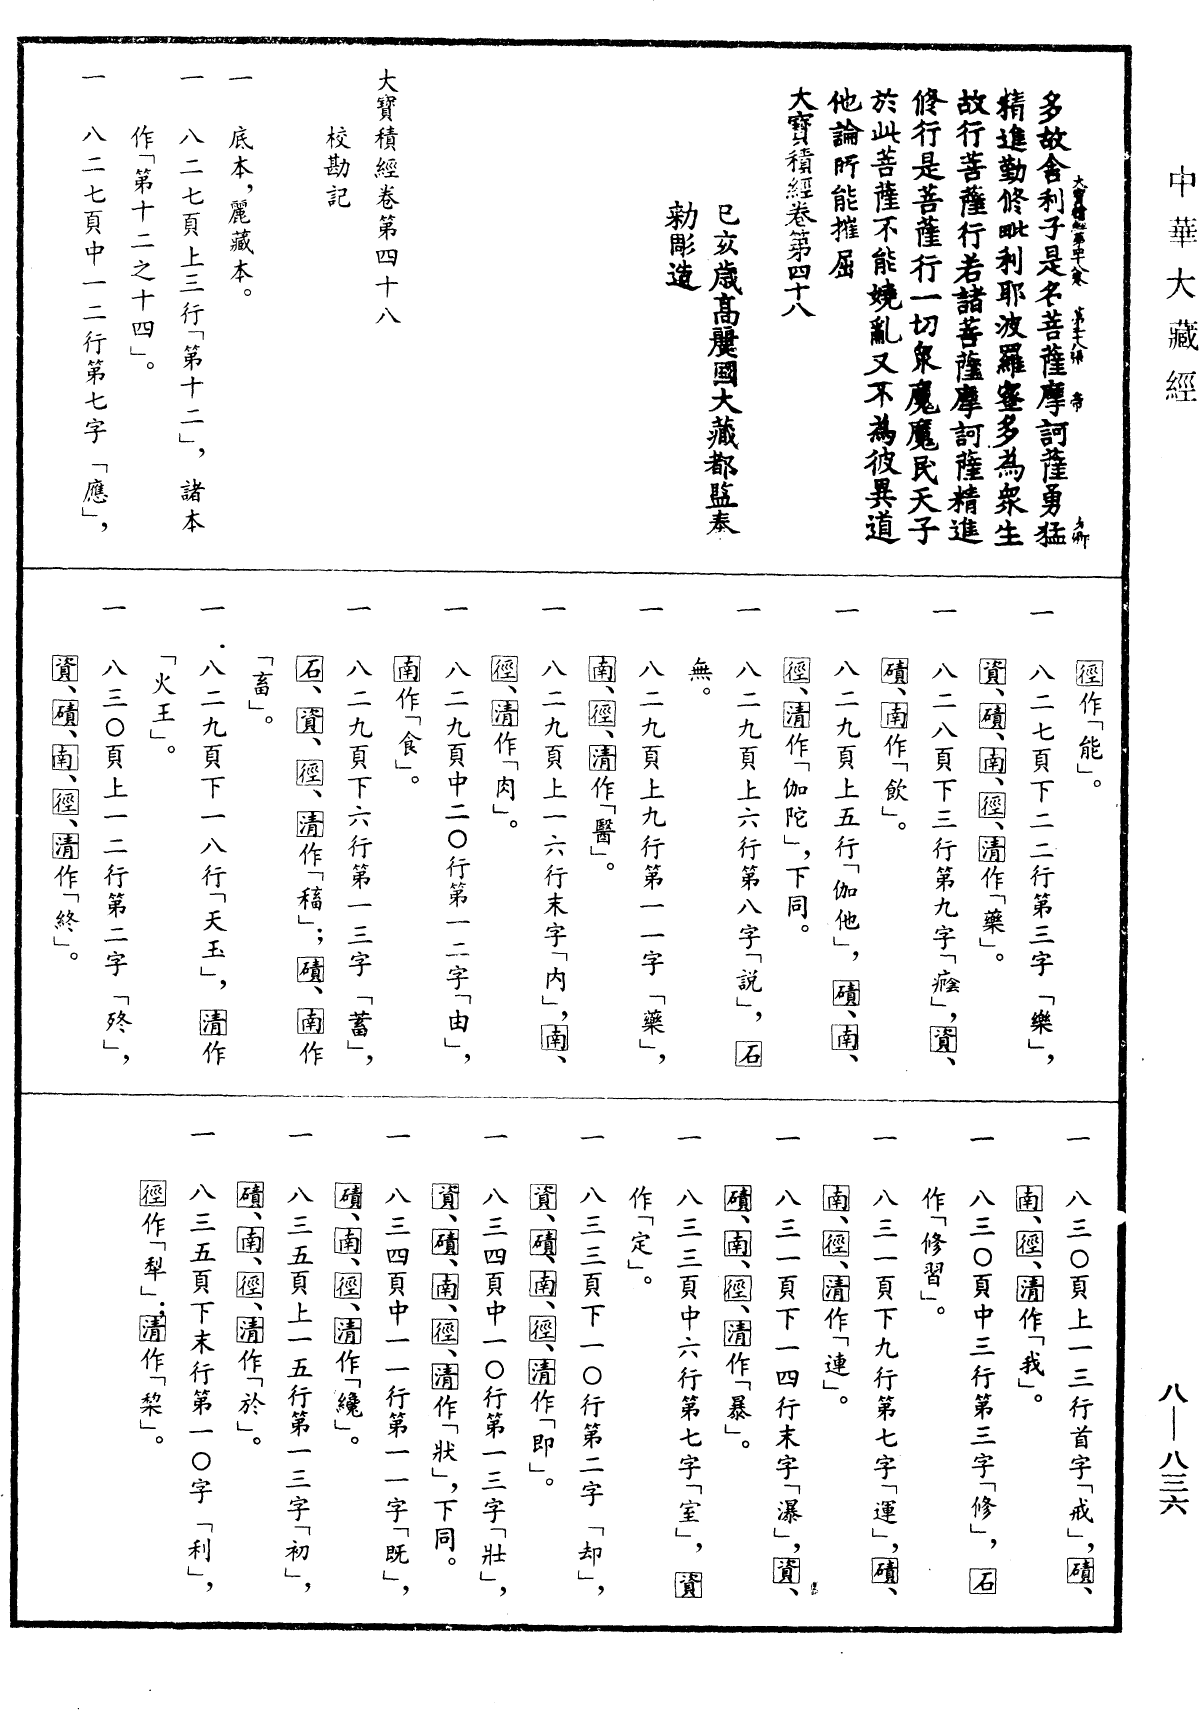 中華大藏經
多故舍利子是名菩薩摩訶薩勇猛
大寶積經第四十八卷　第三十八張　帝
精進勤修毗利耶波羅蜜多為衆生
故行菩薩行若諸菩薩摩訶薩精進
修行是菩薩行一切衆魔魔民天子
於此菩薩不能嬈亂又不為彼異道
他論所能摧屈
大寶積經卷第四十八
己亥歲高麗國大藏都監奉
勑彫造
大寶積經卷第四十八
校勘記
一　底本，麗藏本。
一　八二七頁上三行「第十二」，諸本
作「第十二之十四」。
一　八二七頁中一二行第七字「應」，
徑作「能」。
一　八二七頁下二二行第三字「樂」，
資、磧、南、徑、清作「藥」。
一　八二八頁下三行第九字「癊」，資、
磧、南作「飲」。
一　八二九頁上五行「伽他」，磧、南、
徑、清作「伽陀」，下同。
一　八二九頁上六行第八字「説」，石
無。
一　八二九頁上九行第一一字「藥」，
南、徑、清作「醫」。
一　八二九頁上一六行末字「内」，南、
徑、清作「肉」。
一　八二九頁中二〇行第一二字「由」，
南作「食」。
一　八二九頁下六行第一三字「蓄」，
石、資、徑、清作「稸」；磧、南作
「畜」。
一　八二九頁下一八行「天玉」，清作
「火王」。
一　八三〇頁上一二行第二字「殁」，
資、磧、南、徑、清作「終」。
一　八三〇頁上一三行首字「戒」，磧、
南、徑、清作「我」。
一　八三〇頁中三行第三字「修」，石
作「修習」。
一　八三一頁下九行第七字「運」，磧、
南、徑、清作「連」。
一　八三一頁下一四行末字「瀑」，資、
磧、南、徑、清作「暴」。
一　八三三頁中六行第七字「室」，資
作「定」。
一　八三三頁下一〇行第二字「却」，
資、磧、南、徑、清作「即」。
一　八三四頁中一〇行第一三字「壯」，
資、磧、南、徑、清作「狀」，下同。
一　八三四頁中一一行第一一字「既」，
磧、南、徑、清作「纔」。
一　八三五頁上一五行第一三字「初」，
磧、南、徑、清作「於」。
一　八三五頁下末行第一〇字「利」，
徑作「犁」；清作「棃」。
八—八三六